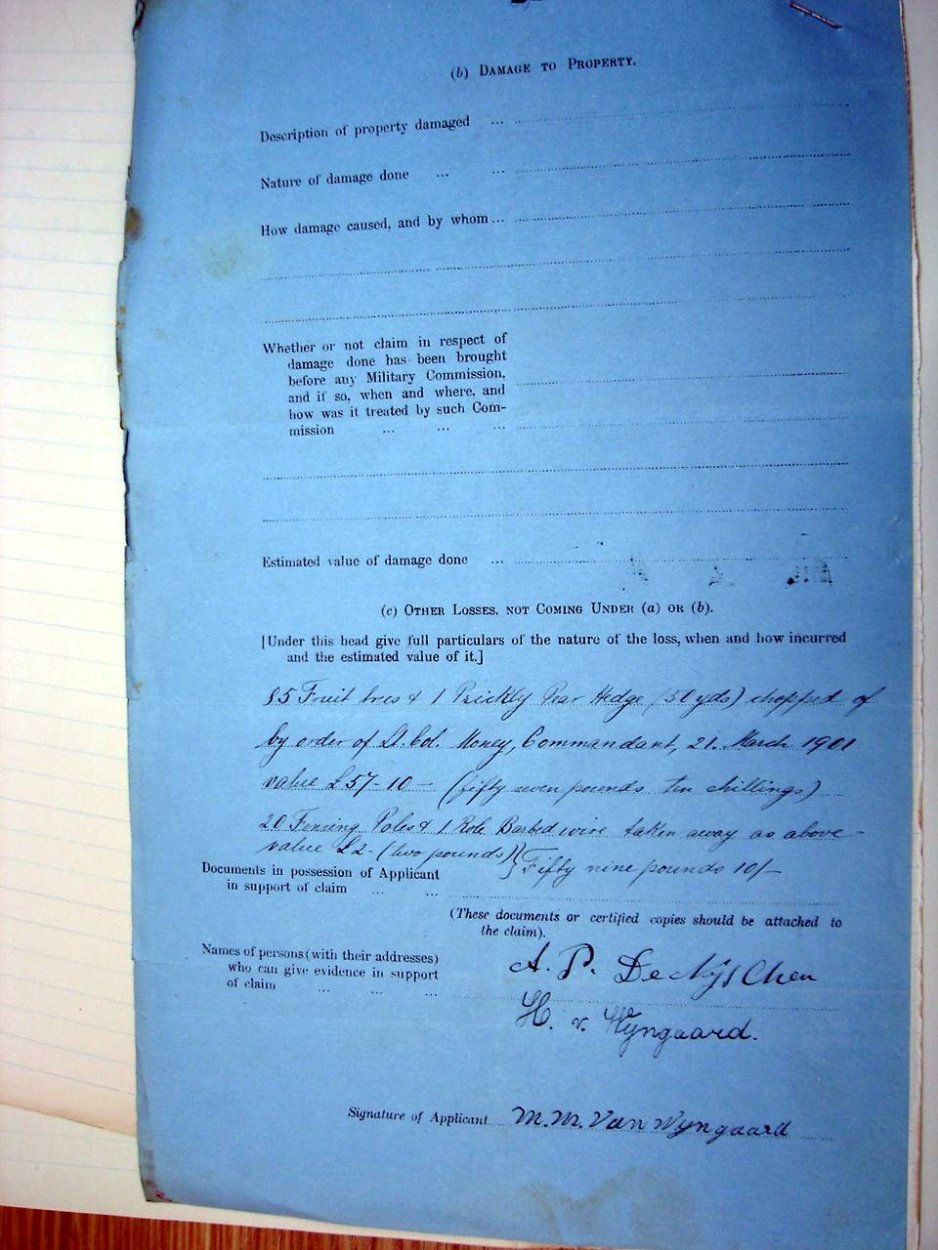 (b) DAMAGE TO PROPERTY.
Description of property damaged ...
Nature of damage done ... ...
How damage caused, and by whom ...
Whether or not claim in respect of
damage done has been brought
before any Military Commission,
and if so, when and where, and
how was it treated by such Com-
mission ... ... ...
Estimated value of damage done ...
(c) OTHER LOSSES, NOT COMING UNDER (a) OR (b).
[Under this head give full particulars of the nature of the loss, when and how incurred
and the estimated value of it.]
85 Fruit trees & 1 Prickly Pear Hedge (50 yds) chopped of
by order of Lt. Col. Money, Commandant, 21. March 1901
value £57-10- (fifty seven pounds ten shillings)
20 Fencing Poles & 1 Role Barbed wire taken away as above -
value £2- (two pounds) } Fifty nine pounds 10/-
Documents in possession of Applicant
in support of claim ... ...
(These documents or certified copies should be attached to
the claim).
Names of persons (with their addresses)
who can give evidence in support
of claim ... ... ...
A. P. De
H. v. Wyngaard.
Signature of Applicant M. M. Van Wyngaard